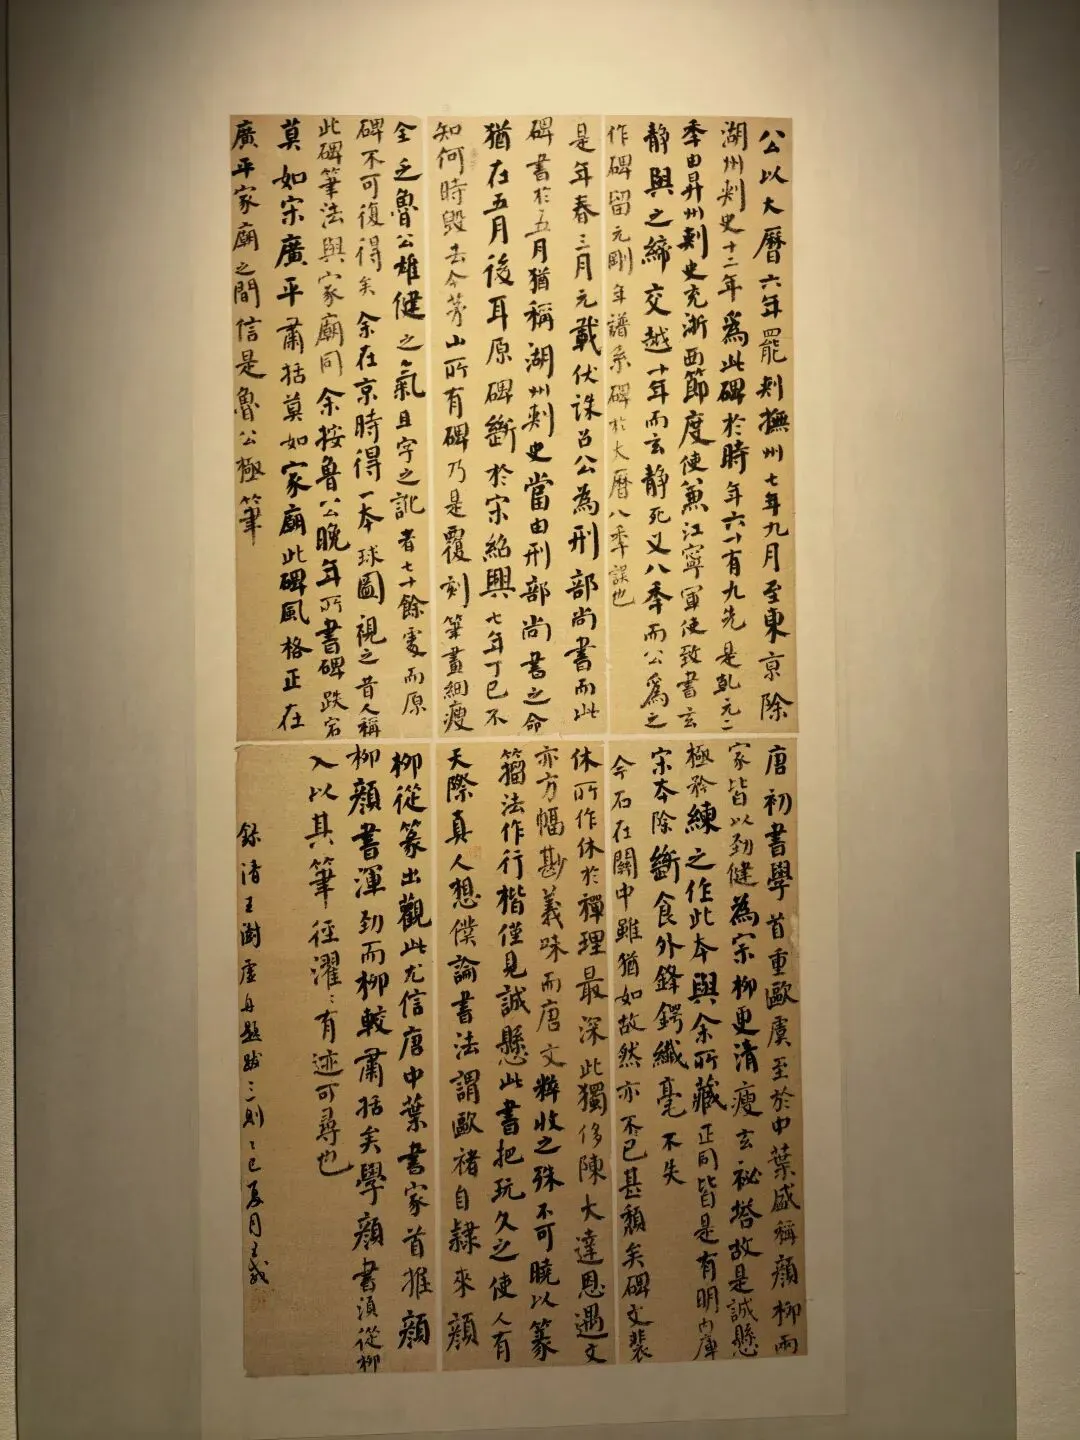 公以大曆六年罷刺撫州七年九月至東京除
湖州刺史十二年為此碑於時年六十有九先是乹元二
季由昇州刺史充浙西節度使兼江寧軍使致書玄
靜與之締交越十年而玄靜死又八季而公為之
作碑留元剛年譜系碑於大曆八季誤也
是年春三月元載伏誅召公為刑部尚書而此
碑書於五月猶稱湖州刺史當由刑部尚書之命
猶在五月後耳原碑斷於宋紹興七年丁巳不
知何時毀去今茅山所有碑乃是覆刻筆畫細瘦
全乏魯公雄健之氣且字之訛者七十餘處而原
碑不可復得矣余在京時得一本球圖視之昔人稱
此碑筆法與家廟同余按魯公晚年所書碑跌宕
莫如宋廣平肅括莫如家廟此碑風格正在
廣平家廟之間信是魯公極筆
唐初書學首重歐虞至於中葉盛稱顏柳兩
家皆以勁健為宗柳更清瘦玄祕塔故是誠懸
極矜練之作此本與余所藏正同皆是有明內庫
宋本除斷食外鋒鍔纖毫不失
今石在關中雖猶如故然亦不已甚頹矣碑文裴
休所作休於禪理最深此獨侈陳大達恩遇文
亦方幅尠義味而唐文粹收之殊不可曉以篆
籀法作行楷僅見誠懸此書把玩久之使人有
天際真人想僕論書法謂歐褚自隸來顏
柳從篆出觀此尤信唐中葉書家首推顏
柳顏書渾勁而柳較肅括矣學顏書須從柳
入以其筆徑濯濯有迹可尋也
錄清王澍虛舟題跋三則乙巳夏月